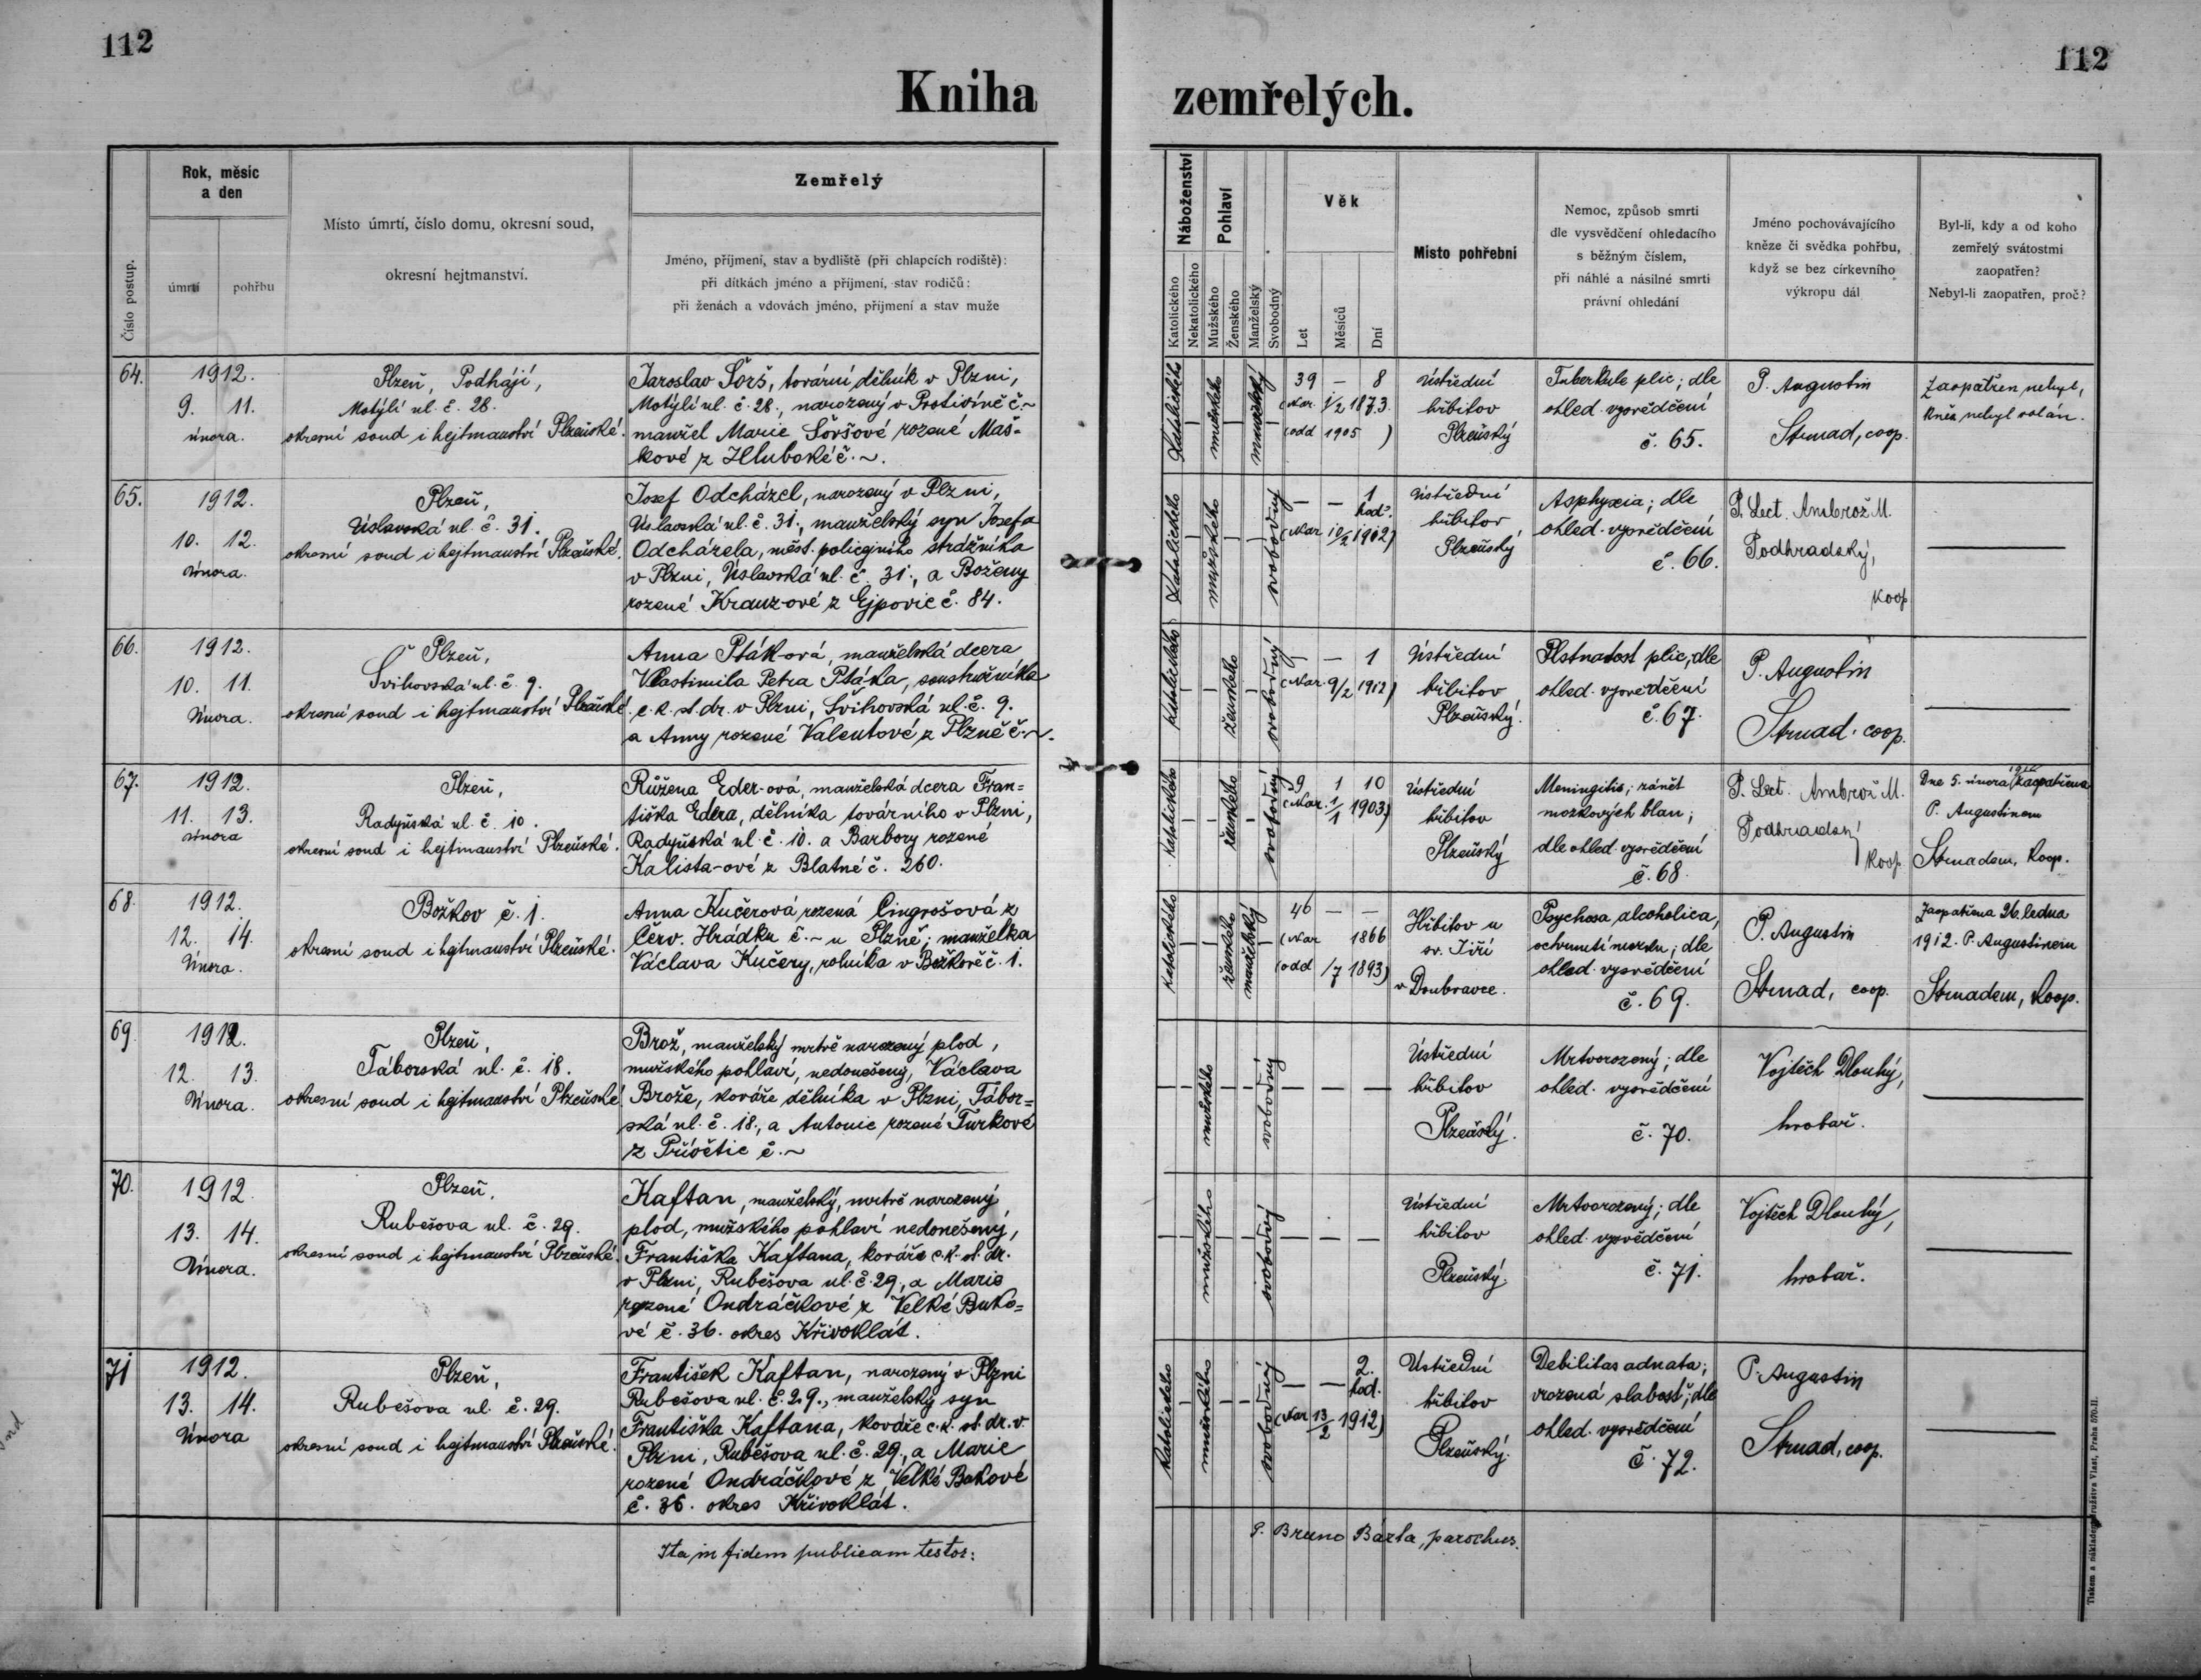 112
112
Kniha
zemřelých.
Číslo postup.
Rok, měsíc
a den
úmrtí
pohřbu
Místo úmrtí, číslo domu, okresní soud,
okresní hejtmanství.
Zemřelý
Jméno, příjmení, stav a bydliště (při chlapcích rodiště):
při dítkách jméno a příjmení, stav rodičů:
při ženách a vdovách jméno, příjmení a stav muže
Náboženství
Katolického
Nekatolického
Pohlaví
Mužského
Ženského
Manželský
Svobodný
Věk
Let
Měsíců
Dní
Místo pohřební
Nemoc, způsob smrti
dle vysvědčení ohledacího
s běžným číslem,
při náhlé a násilné smrti
právní ohledání
Jméno pochovávajícího
kněze či svědka pohřbu,
když se bez církevního
výkropu dál
Byl-li, kdy a od koho
zemřelý svátostmi
zaopatřen?
Nebyl-li zaopatřen, proč?
64.
1912.
9. 11.
února.
Plzeň, Podhájí,
Motýlí ul. č. 28.
okresní soud i hejtmanství Plzeňské.
Jaroslav Šorš, tovární dělník v Plzni,
Motýlí ul. č. 28., narozený v Protivíně č. ~
manžel Marie Šoršové rozené Maš-
kové z Hluboké č. ~.
Katolického
mužského
manželský
39 – 8
(Nar. 1/2 1873.
(odd 1905 )
Ústřední
hřbitov
Plzeňský
Tuberkule plic; dle
ohled. vysvědčení
č. 65.
P. Augustin
Strnad, coop.
Zaopatřen nebyl,
kněz nebyl volán.
65.
1912.
10. 12.
února.
Plzeň,
Úslavská ul. č. 31.
okresní soud i hejtmanství Plzeňské.
Josef Odcházel, narozený v Plzni,
Úslavská ul. č. 31., manželský syn Josefa
Odcházela, měst. policejního strážníka
v Plzni, Úslavská ul. č. 31., a Boženy
rozené Krauz-ové z Ejpovic č. 84.
Katolického
mužského
svobodný
– – 1
hod.
(Nar 10/2 1912)
Ústřední
hřbitov
Plzeňský
Asphyxia; dle
ohled. vysvědčení
č. 66.
P. Lect. Ambrož M.
Podhradský,
koop.
66.
1912.
10. 11.
února.
Plzeň,
Švihovská ul. č. 9.
okresní soud i hejtmanství Plzeňské.
Anna Pták-ová, manželská dcera
Vlastimila Petra Ptáka, soustružníka
c. k. st. dr. v Plzni, Švihovská ul. č. 9.
a Anny rozené Valentové z Plzně č. ~.
Katolického
ženského
svobodný
– – 1
(Nar. 9/2 1912)
Ústřední
hřbitov
Plzeňský.
Plstnatost plic, dle
ohled. vysvědčení
č. 67.
P. Augustin
Strnad, coop.
67.
1912.
11. 13.
února
Plzeň,
Radyňská ul. č. 10.
okresní soud i hejtmanství Plzeňské.
Růžena Eder-ová, manželská dcera Fran=
tiška Edera, dělníka továrního v Plzni,
Radyňská ul. č. 10. a Barbory rozené
Kalista-ové z Blatné č. 260.
Katolického
ženského
svobodný
9 1 10
(Nar. 1/1 1903)
Ústřední
hřbitov
Plzeňský
Meningitis; zánět
mozkových blan;
dle ohled. vysvědčení
č. 68.
P. Lect. Ambrož M.
Podhradský
koop.
Dne 5. února 1912 zaopatřena
P. Augustinem
Strnadem, koop.
68.
1912.
12. 14.
února.
Božkov č. 1.
okresní soud i hejtmanství Plzeňské.
Anna Kučerová rozená Cingrošová z
Červ. Hrádku č. ~ u Plzně; manželka
Václava Kučery, rolníka v Božkově č. 1.
Katolického
ženského
manželský
46 – –
(Nar 1866
(odd /7 1893)
Hřbitov u
sv. Jiří
v Doubravce.
Psychosa alcoholica,
ochrnutí mozku; dle
ohled. vysvědčení
č. 69.
P. Augustin
Strnad, coop.
Zaopatřena 26. ledna
1912. P. Augustinem
Strnadem, koop.
69
1912.
12. 13.
února.
Plzeň,
Táborská ul. č. 18.
okresní soud i hejtmanství Plzeňské.
Brož, manželský mrtvě narozený plod,
mužského pohlaví, nedonešený, Václava
Brože, kováře dělníka v Plzni, Tábor=
ská ul. č. 18., a Antonie rozené Turkové
z Přívětic č. ~
mužského
svobodný
Ústřední
hřbitov
Plzeňský.
Mrtvorozený; dle
ohled. vysvědčení
č. 70.
Vojtěch Dlouhý,
hrobař.
70.
1912.
13. 14.
února.
Plzeň,
Rubešova ul. č. 29.
okresní soud i hejtmanství Plzeňské.
Kaftan, manželský, mrtvě narozený
plod, mužského pohlaví nedonešený,
Františka Kaftana, kováře c. k. st. dr.
v Plzni, Rubešova ul. č. 29., a Marie
rozené Ondráčkové z Velké Buko=
vé č. 36. okres Křivoklát.
mužského
svobodný
Ústřední
hřbitov
Plzeňský.
Mrtvorozený; dle
ohled. vysvědčení
č. 71.
Vojtěch Dlouhý,
hrobař.
71
1912.
13. 14.
února
Plzeň,
Rubešova ul. č. 29.
okresní soud i hejtmanství Plzeňské.
František Kaftan, narozený v Plzni
Rubešova ul. č. 29., manželský syn
Františka Kaftana, kováře c. k. st. dr. v
Plzni, Rubešova ul. č. 29., a Marie
rozené Ondráčkové z Velké Bukové
č. 36. okres Křivoklát.
Katolického
mužského
svobodný
– – 2.
hod.
(Nar 13/2 1912)
Ústřední
hřbitov
Plzeňský.
Debilitas adnata;
vrozená slabost; dle
ohled. vysvědčení
č. 72.
P. Augustin
Strnad, coop.
Ita in fidem publicam testor:
P. Bruno Bárta, parochus.
Tiskem a nákladem družstva Vlast, Praha 570-II.